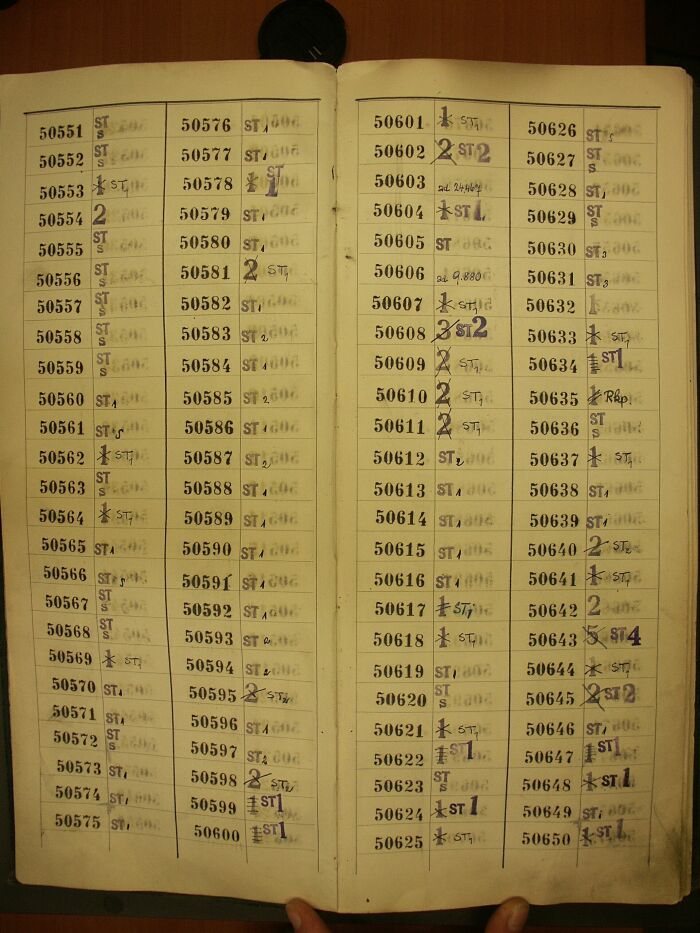 50551 ST S
50552 ST S
50553 1 ST1
50554 2
50555 ST S
50556 ST S
50557 ST S
50558 ST S
50559 ST S
50560 ST1
50561 ST S
50562 1 ST1
50563 ST S
50564 1 ST1
50565 ST1
50566 ST S
50567 ST S
50568 ST S
50569 1 ST1
50570 ST1
50571 ST1
50572 ST S
50573 ST1
50574 ST1
50575 ST1
50576 ST1
50577 ST1
50578 1 ST 1
50579 ST1
50580 ST1
50581 2 ST1
50582 ST1
50583 ST2
50584 ST1
50585 ST2
50586 ST1
50587 ST2
50588 ST1
50589 ST1
50590 ST1
50591 ST1
50592 ST1
50593 ST2
50594 ST2
50595 2 ST2
50596 ST1
50597 ST2
50598 2 ST2
50599 1 ST1
50600 1 ST1
50601 1 ST1
50602 2 ST2
50603 ad 24.467
50604 1 ST1
50605 ST
50606 ad 9.880
50607 1 ST1
50608 3 ST2
50609 2 ST1
50610 2 ST1
50611 2 ST1
50612 ST2
50613 ST1
50614 ST1
50615 ST1
50616 ST1
50617 1 ST1
50618 1 ST1
50619 ST1
50620 ST S
50621 1 ST1
50622 1 ST1
50623 ST S
50624 1 ST1
50625 1 ST1
50626 ST S
50627 ST S
50628 ST1
50629 ST S
50630 ST3
50631 ST3
50632 1
50633 1 ST1
50634 1 ST1
50635 1 Rkp.
50636 ST S
50637 1 ST1
50638 ST1
50639 ST1
50640 2 ST2
50641 1 ST1
50642 2
50643 5 ST4
50644 1 ST1
50645 2 ST2
50646 ST1
50647 1 ST1
50648 1 ST1
50649 ST1
50650 1 ST1